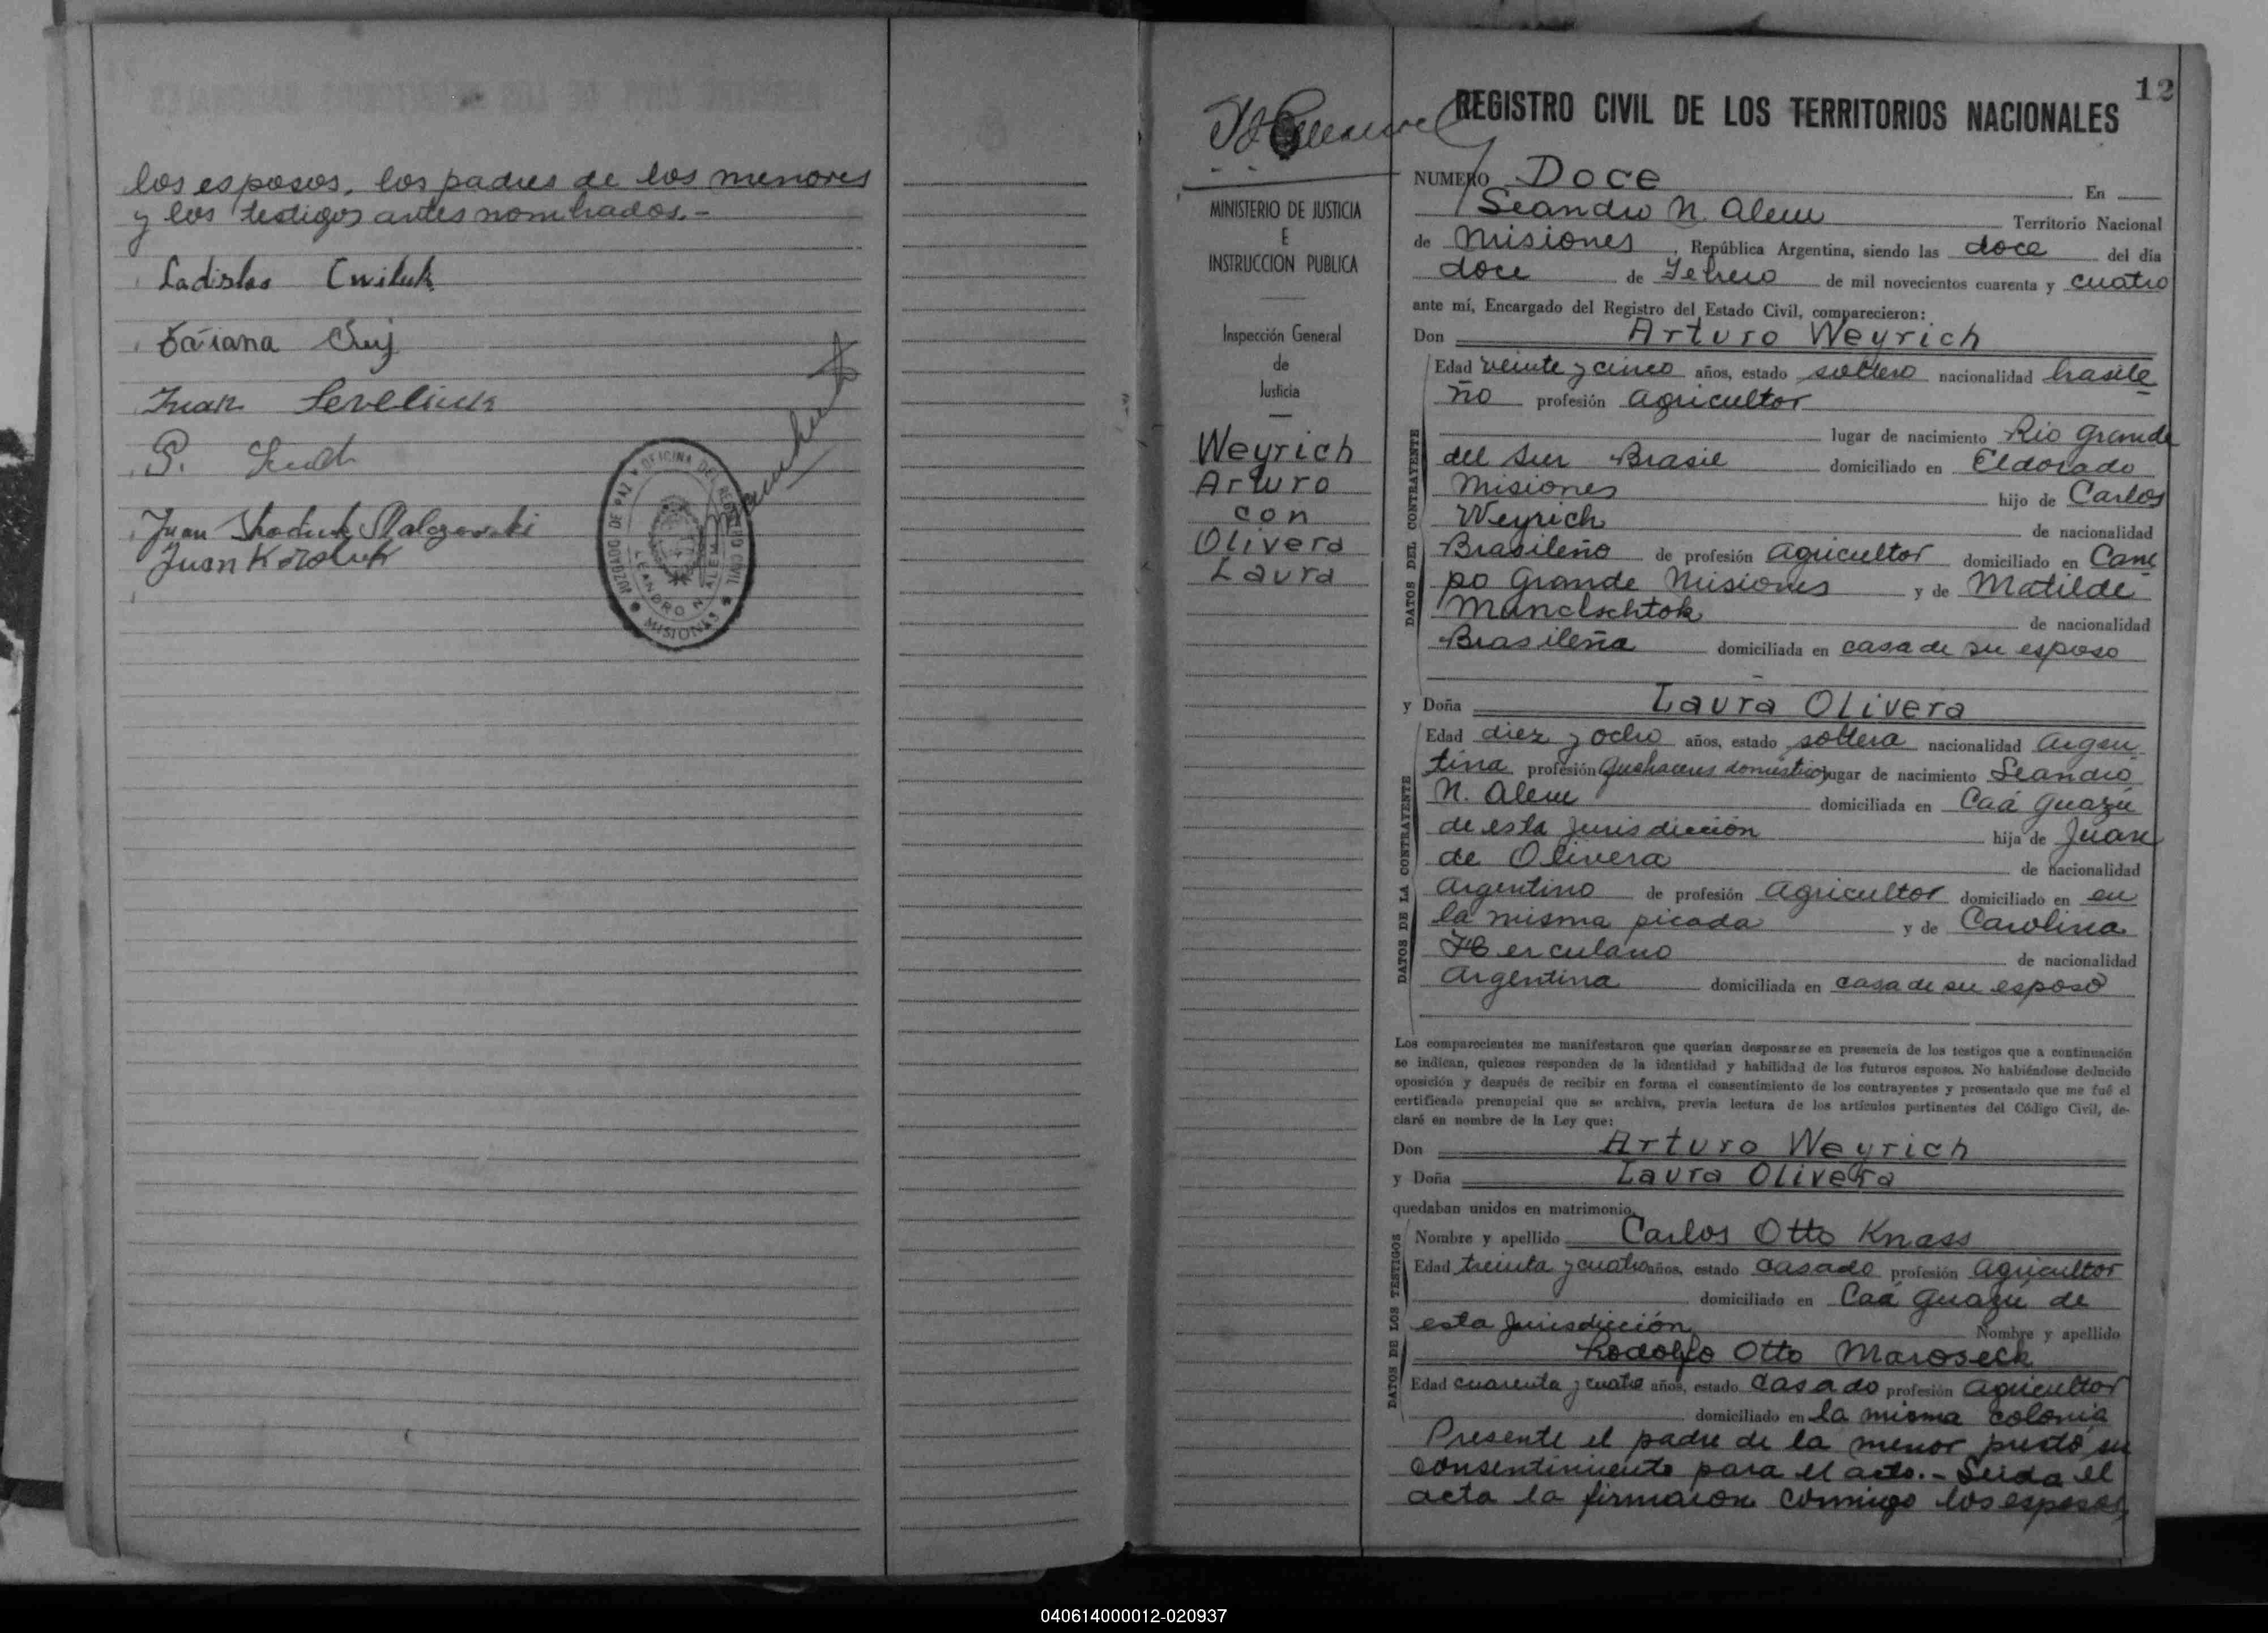 los esposos, los padres de los menores
y los testigos antes nombrados.-
Ladislao Cwiluk
Juan Seveliuk
Juan
Juan Koroluk
JUZGADO DE PAZ OFICINA DEL REGISTRO CIVIL
LEANDRO N. ALEM
MISIONES
12
REGISTRO CIVIL DE LOS TERRITORIOS NACIONALES
MINISTERIO DE JUSTICIA
E
INSTRUCCION PUBLICA
Inspección General
de
Justicia
Weyrich
Arturo
con
Olivera
Laura
NUMERO Doce En
Leandro N. Alem Territorio Nacional
de Misiones, República Argentina, siendo las doce del día
doce de Febrero de mil novecientos cuarenta y cuatro
ante mí, Encargado del Registro del Estado Civil, comparecieron:
Don Arturo Weyrich
DATOS DEL CONTRAYENTE
Edad veinte y cinco años, estado soltero nacionalidad brasile
ño profesión agricultor
lugar de nacimiento Rio Grande
del Sur Brasil domiciliado en Eldorado
Misiones hijo de Carlos
Weyrich de nacionalidad
Brasileño de profesión agricultor domiciliado en Cam
po Grande Misiones y de Matilde
Mundschtok de nacionalidad
Brasileña domiciliada en casa de su esposo
y Doña Laura Olivera
DATOS DE LA CONTRAYENTE
Edad diez y ocho años, estado soltera nacionalidad argen
tina profesión quehaceres domésticos lugar de nacimiento Leandro
N. Alem domiciliada en Caá Guazú
de esta jurisdicción hija de Juan
de Olivera de nacionalidad
argentino de profesión agricultor domiciliado en en
la misma picada y de Carolina
Herculano de nacionalidad
argentina domiciliada en casa de su esposo
Los comparecientes me manifestaron que querían desposarse en presencia de los testigos que a continuación
se indican, quienes responden de la identidad y habilidad de los futuros esposos. No habiéndose deducido
oposición y después de recibir en forma el consentimiento de los contrayentes y presentado que me fué el
certificado prenupcial que se archiva, previa lectura de los artículos pertinentes del Código Civil, de-
claré en nombre de la Ley que:
Don Arturo Weyrich
y Doña Laura Olivera
quedaban unidos en matrimonio.
DATOS DE LOS TESTIGOS
Nombre y apellido Carlos Otto Knass
Edad treinta y cuatro años, estado casado profesión agricultor
domiciliado en Caá Guazu de
esta jurisdicción Nombre y apellido
Rodolfo Otto Maroseck
Edad cuarenta y cuatro años, estado casado profesión agricultor
domiciliado en la misma colonia
Presente el padre de la menor prestó su
consentimiento para el acto.- Leida el
acta la firmaron conmigo los esposos,
040614000012-020937